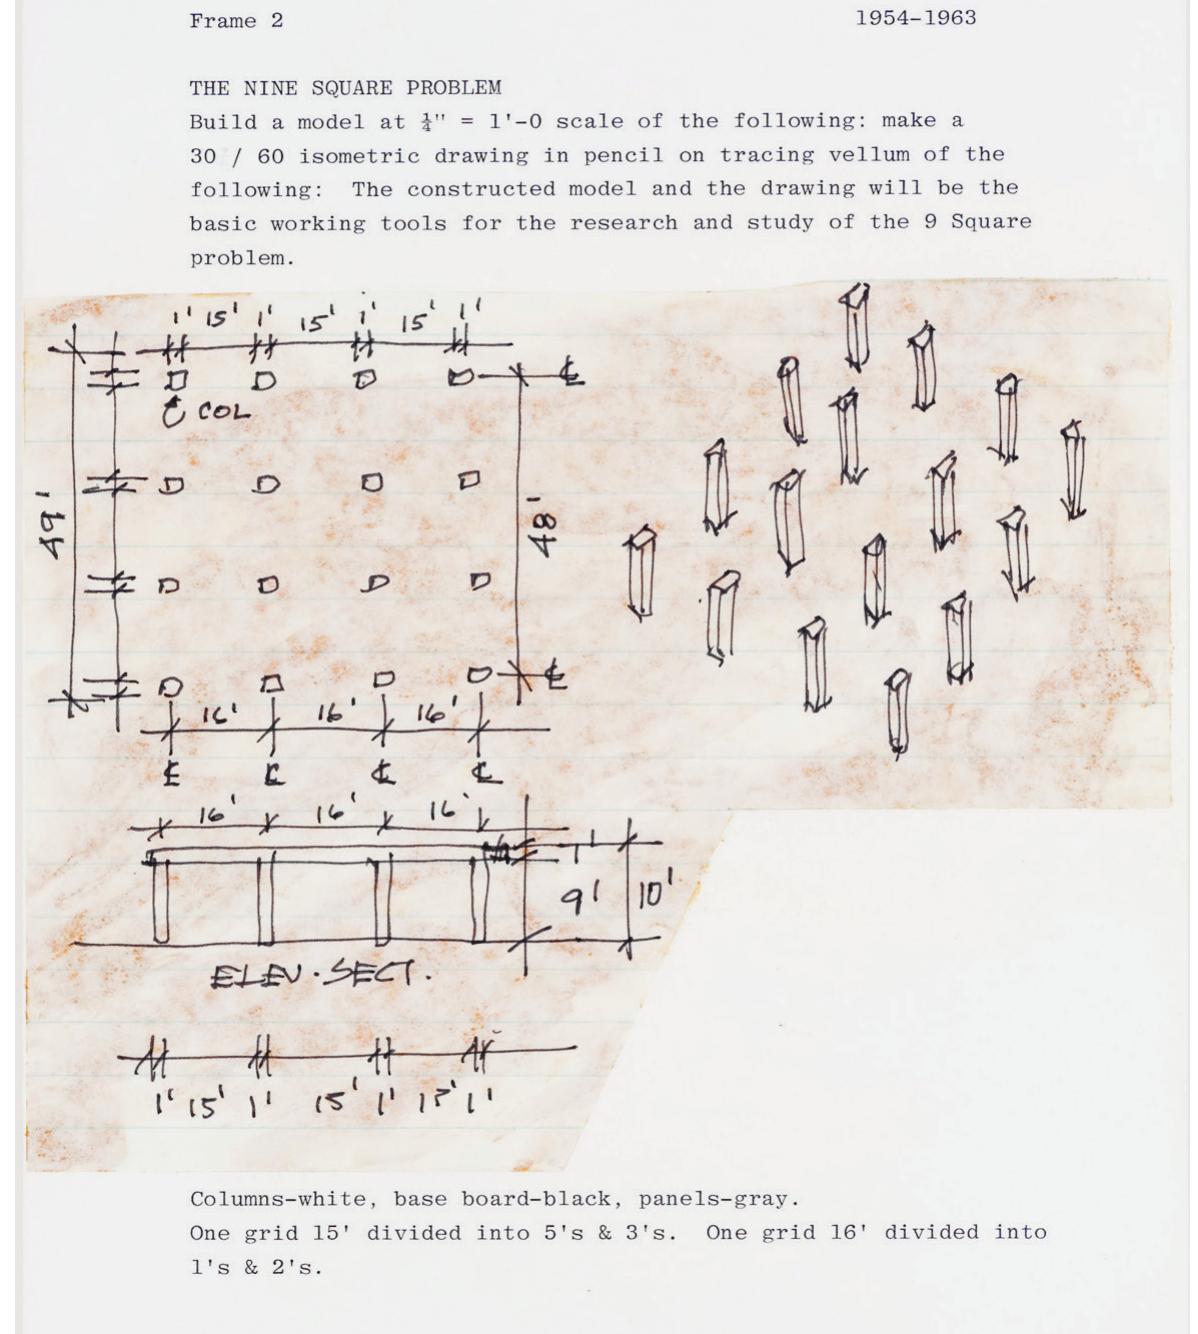 Frame 2 1954-1963
THE NINE SQUARE PROBLEM
Build a model at ¼" = 1'-0 scale of the following: make a
30 / 60 isometric drawing in pencil on tracing vellum of the
following: The constructed model and the drawing will be the
basic working tools for the research and study of the 9 Square
problem.
1' 15' 1' 15' 1' 15' 1'
℄
℄ COL
49'
48'
℄
16' 16' 16'
℄ ℄ ℄ ℄
16' 16' 16'
1'
9' 10'
ELEV. SECT.
1' 15' 1' 15' 1' 15' 1'
Columns-white, base board-black, panels-gray.
One grid 15' divided into 5's & 3's. One grid 16' divided into
1's & 2's.